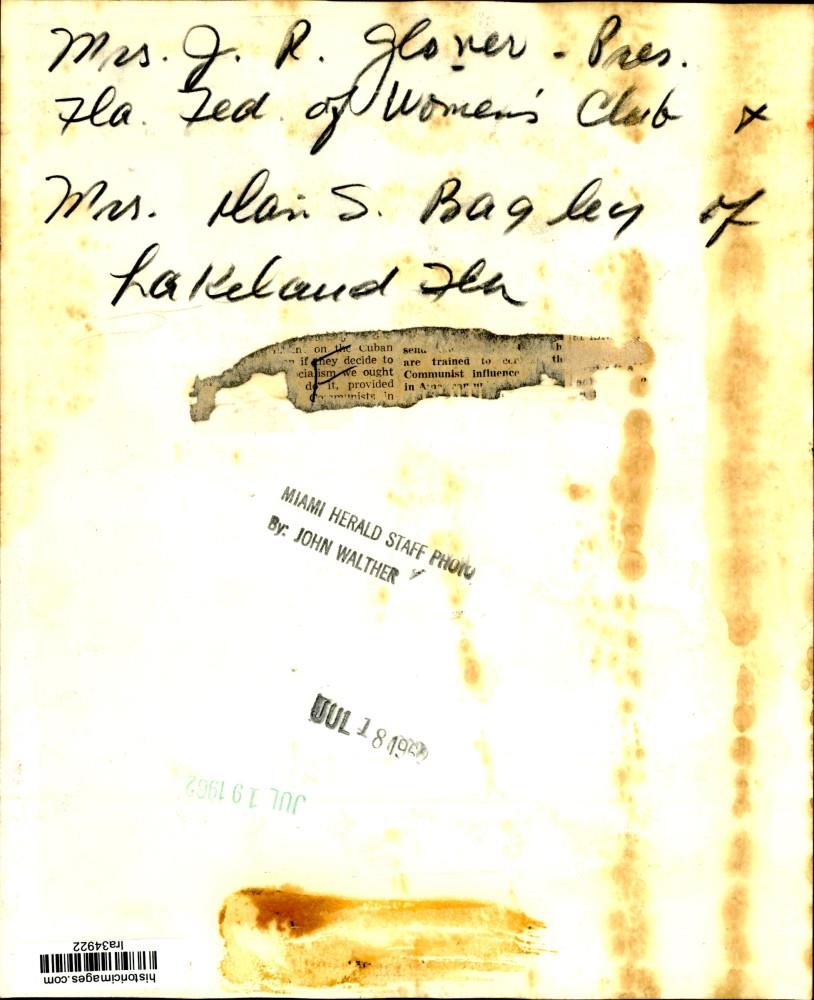 Mrs. J. R. Glover - Pres.
Fla. Fed. of Women's Club &
Mrs. Dan S. Bagley of
Lakeland Fla
on the Cuban
if they decide to
cialism we ought
do it, provided
are trained to
Communist influence
in
MIAMI HERALD STAFF PHOTO
By: JOHN WALTHER
JUL 18 1962
JUL 19 1962
lra34922
historicimages.com